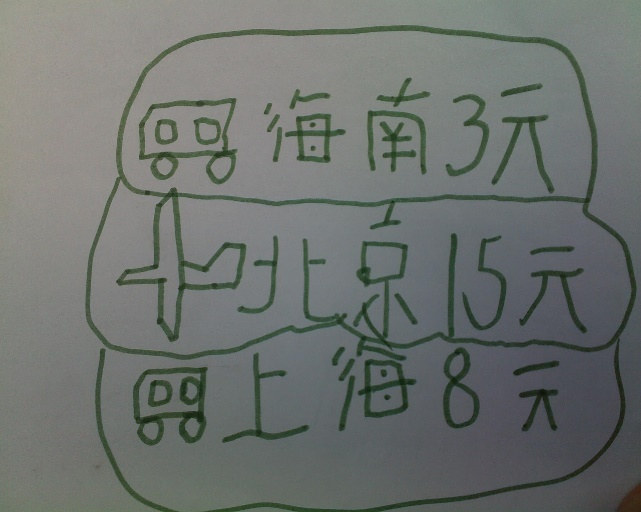 海南3元
北京15元
上海8元